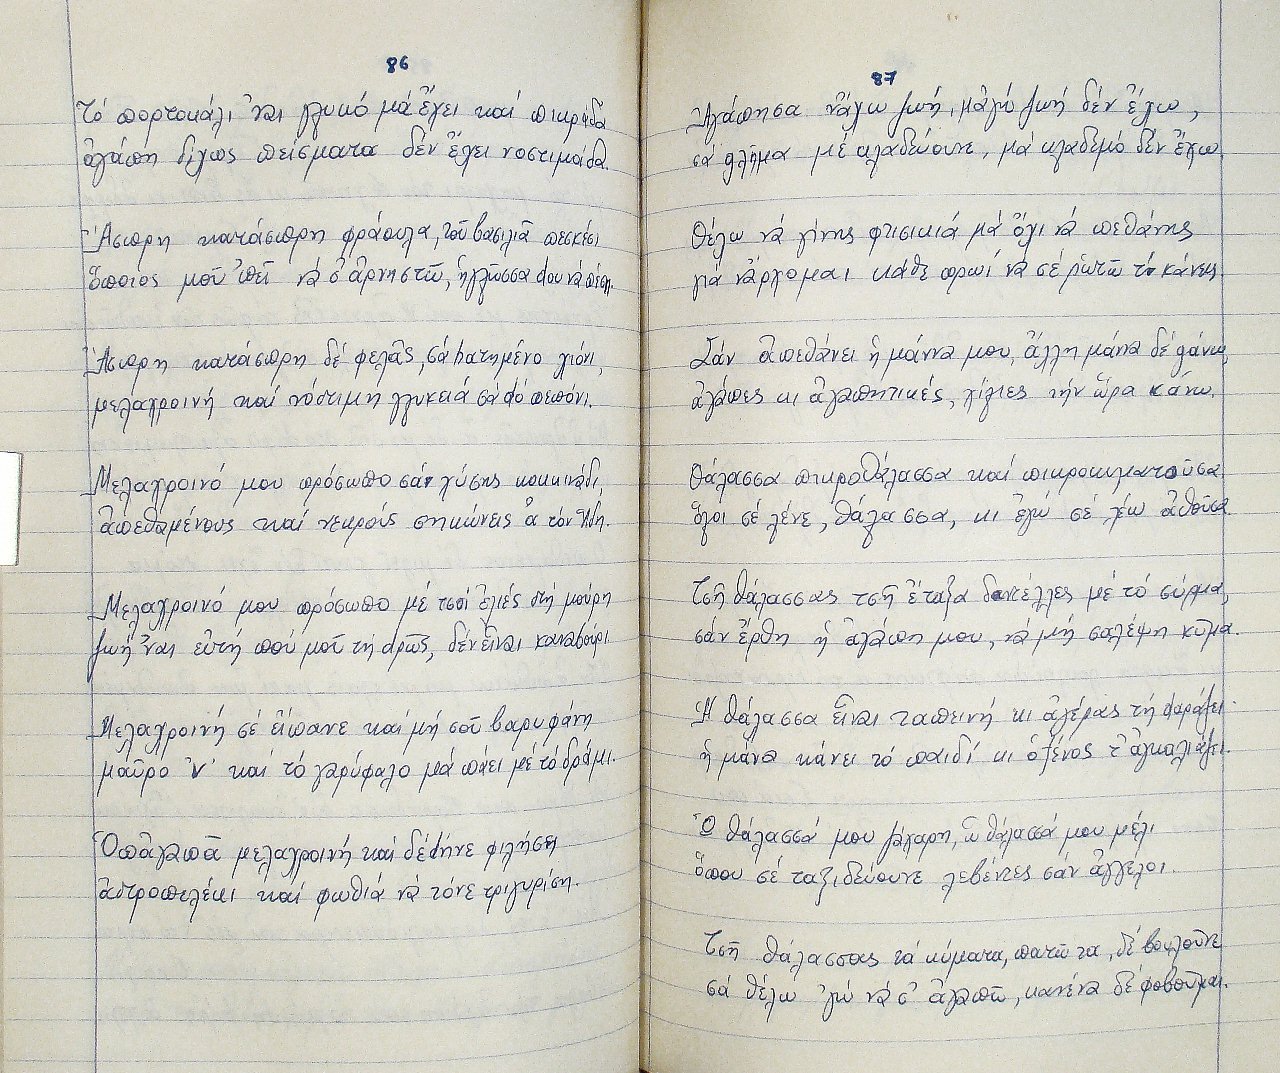 86
Τό πορτοκάλι 'ναι γλυκό μά ἔχει καί πικράδα
ἀγάπη δίχως πείσματα δέν ἔχει νοστιμάδα.
Ἄσπρη κατάσπρη φράουλα, τοῦ βασιλιᾶ πεσκέσι
ὅποιος μοῦ 'πεῖ νά σ' ἀρνηστῶ, ἡ γλῶσσα dου νά πέση.
Ἄσπρη κατάσπρη δέ φελᾶς, σά bατημένο χιόνι,
μελαχροινή καί νόστιμη γλυκειά σά dό πεπόνι.
Μελαχροινό μου πρόσωπο σά χύσης κοκκινάδι,
ἀπεθαμένους καί νεκρούς σηκώνεις ἀ τόν Ἅδη.
Μελαχροινό μου πρόσωπο μέ τσοί ἐλιές στή μούρη
ζωή 'ναι εὐτή πού μοῦ τή dρῶς, δέν εἶναι καναβούρι
Μελαχροινή σέ εἴπανε καί μή σοῦ βαρυφάνη
μαῦρο 'ν' καί τό γαρύφαλο μά πάει μέ τό δράμι.
Ὁπ' ἀγαπᾶ μελαχροινή καί δέ dήνε φιλήση
ἀστροπελέκι καί φωθιά νά τόνε τριγυρίση.
87
Ἀγάπησα νἄχω ζωή, μἀγώ ζωή δέν ἔχω,
σά φλῆμα μέ κλαδεύουνε, μά κλαδεμό δέν ἔχω.
Θέλω νά γίνης φτισικιά μά ὄχι νά πεθάνης
γιά νἄρχομαι κάθε πρωί νά σέ ρωτῶ τί κάνεις.
Σάν ἀπεθάνει ἡ μάννα μου, ἄλλη μάνα δέ χάνω,
ἀγάπες κι ἀγαπητικές, χίλιες τήν ὥρα κάνω.
Θάλασσα πικροθάλασσα καί πικροκυματοῦσα
ὅλοι σέ λένε, θάλασσα, κι ἐγώ σέ λέω ἀθοῦσα
Τσῆ θάλασσας τσῆ ἔταξα δαντέλλες μέ τό σύρμα,
σάν ἔρθη ἡ ἀγάπη μου, νά μή σαλέψη κῦμα.
Ἡ θάλασσα εἶναι ταπεινή κι ἀγέρας τή dαράζει
ἡ μάνα κάνει τό παιδί κι ὁ ξένος τ' ἀγκαλιάζει.
Ὦ θάλασσά μου ζάχαρη, ὦ θάλασσά μου μέλι
ὅπου σέ ταξιδεύουνε λεβέντες σάν ἀγγέλοι.
Τσῆ θάλασσας τά κύματα, πατῶ τα, δέ βουλοῦνε
σά θέλω 'γώ νά σ' ἀγαπῶ, κανένα δέ φοβοῦμαι.